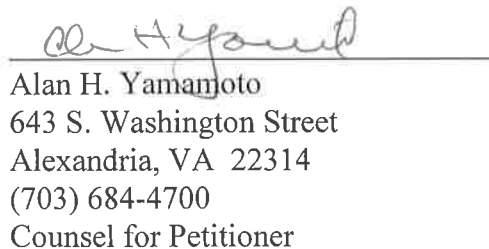 Alan H. Yamamoto
643 S. Washington Street
Alexandria, VA 22314
(703) 684-4700
Counsel for Petitioner